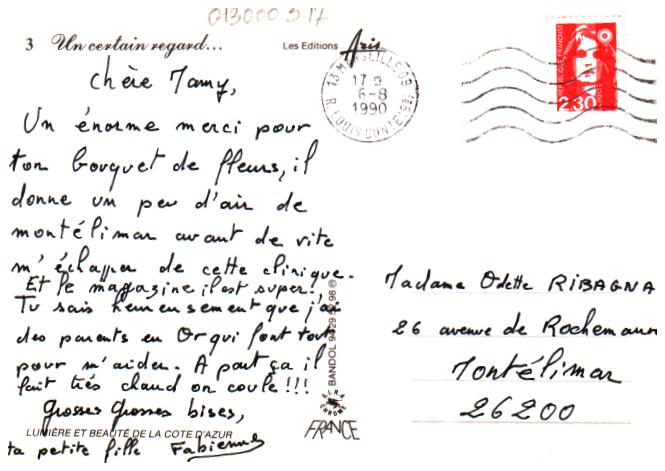 013000517
3 Un certain regard...
Les Editions Aris
Chère Mamy,
Un énorme merci pour
ton bouquet de fleurs, il
donne un peu d'air de
montélimar avant de vite
m'échapper de cette clinique.
Et le magazine il est super.
Tu sais heureusement que j'ai
des parents en Or qui font tout
pour m'aider. A part ça il
fait très chaud on coule !!!
Grosses Grosses bises,
ta petite fille Fabienne
LUMIÈRE ET BEAUTÉ DE LA COTE D'AZUR
BANDOL 94 29 52 98 ©
FRANCE
13 MARSEILLE 08
17 H
6-8
1990
R. LOUIS
2,30
Madame Odette RIBAGNA
26 avenue de Rochemaure
Montélimar
26200